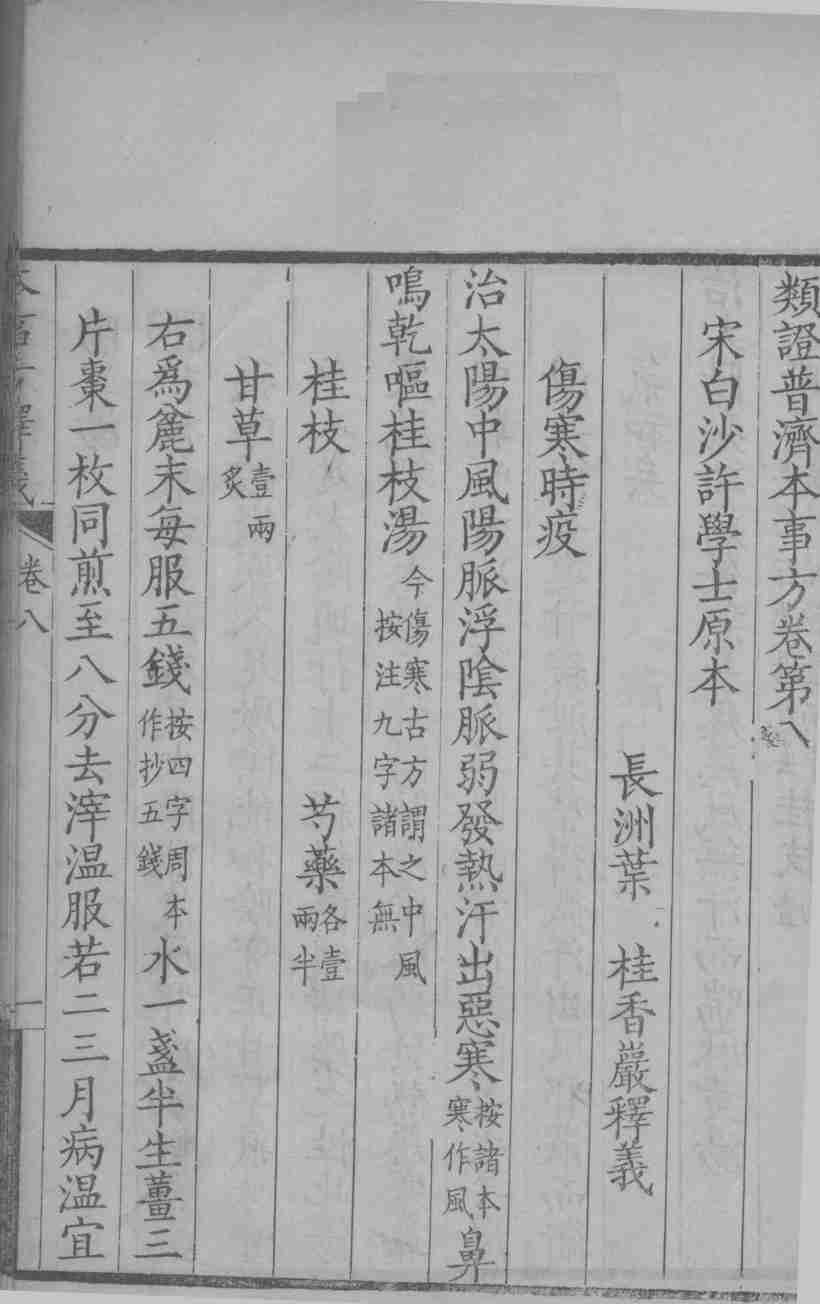 類證普濟本事方卷第八
宋白沙許學士原本
長洲葉　桂香巖釋義
傷寒時疫
治太陽中風陽脈浮陰脈弱發熱汗出惡寒按諸本寒作風鼻
鳴乾嘔桂枝湯今傷寒古方謂之中風按注九字諸本無
桂枝　芍藥各壹兩半
甘草壹兩炙
右爲麄末每服五錢按四字周本作抄五錢水一盞半生薑三
片棗一枚同煎至八分去滓温服若二三月病温宜
本事方釋義　卷八　一